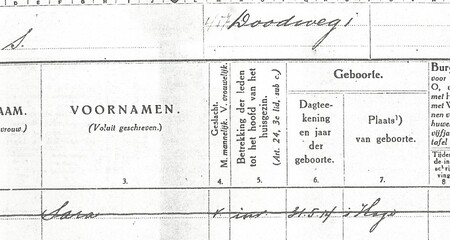 Doodweg 1
S.
Burg
Geboorte.
voor
O, u
met H
met V
en
huwe
vijfja
tafel
AAM.
vrouw.)
VOORNAMEN.
(Voluit geschreven.)
Geslacht.
M. mannelijk. V. vrouwelijk.
Betrekking der leden
tot het hoofd van het
huisgezin.
(Art. 24, 2e lid, sub c.)
Dagtee-
kening
en jaar
der
geboorte.
Plaats¹)
van geboorte.
Tijden
de in
ving
3.
4.
5.
6.
7.
8
Sara
v.
inw
31.5.14
's Hage